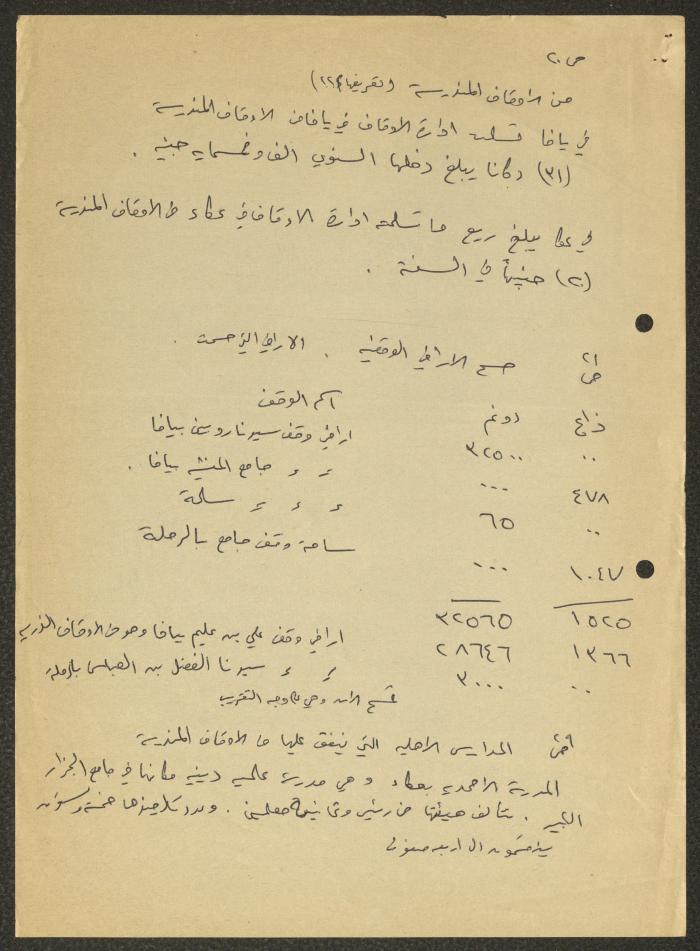 ص ٢٠
من الاوقاف المندرسة
في يافا تسلمت ادارة الاوقاف في يافا من الاوقاف المندرسة
(٣١) دكانا يبلغ دخلها السنوي الف وخمسماية جنيه .
في عكا يبلغ ريع ما تسلمته ادارة الاوقاف في عكاء من الاوقاف المندرسة
(٢٠) جنيهاً في السنة .
ص ٢١ مسح الاراضي الوقفية . الاراضي التي مسحت .
ذراع دونم اسم الوقف
.. ٣٢٥٠٠ اراضي وقف سيدنا روبين بيافا
٤٧٨ ... جامع المنشية بيافا .
.. ٦٥ سلمة
١٠٤٧ ... ساحة وقف جامع بالرملة
١٥٢٥ ٣٢٥٦٥
١٣٦٦ ٢٨٦٤٦ اراضي وقف علي بن عليم بيافا وهو من الاوقاف
.. ٣٠٠٠ سيدنا الفضل بن العباس بالرملة
تمسح الان وهي على وجه التقريب
ص المدارس الاهلية التي ينفق عليها من الاوقاف المندرسة
المدرسة الاحمدية بعكاء وهي مدرسة علمية دينية مكانها في جامع الجزار
الكبير . تتألف هيئتها من رئيس وثمانية معلمين . وعدد تلاميذها خمسة وستون
ينقسمون الى اربعة صفوف